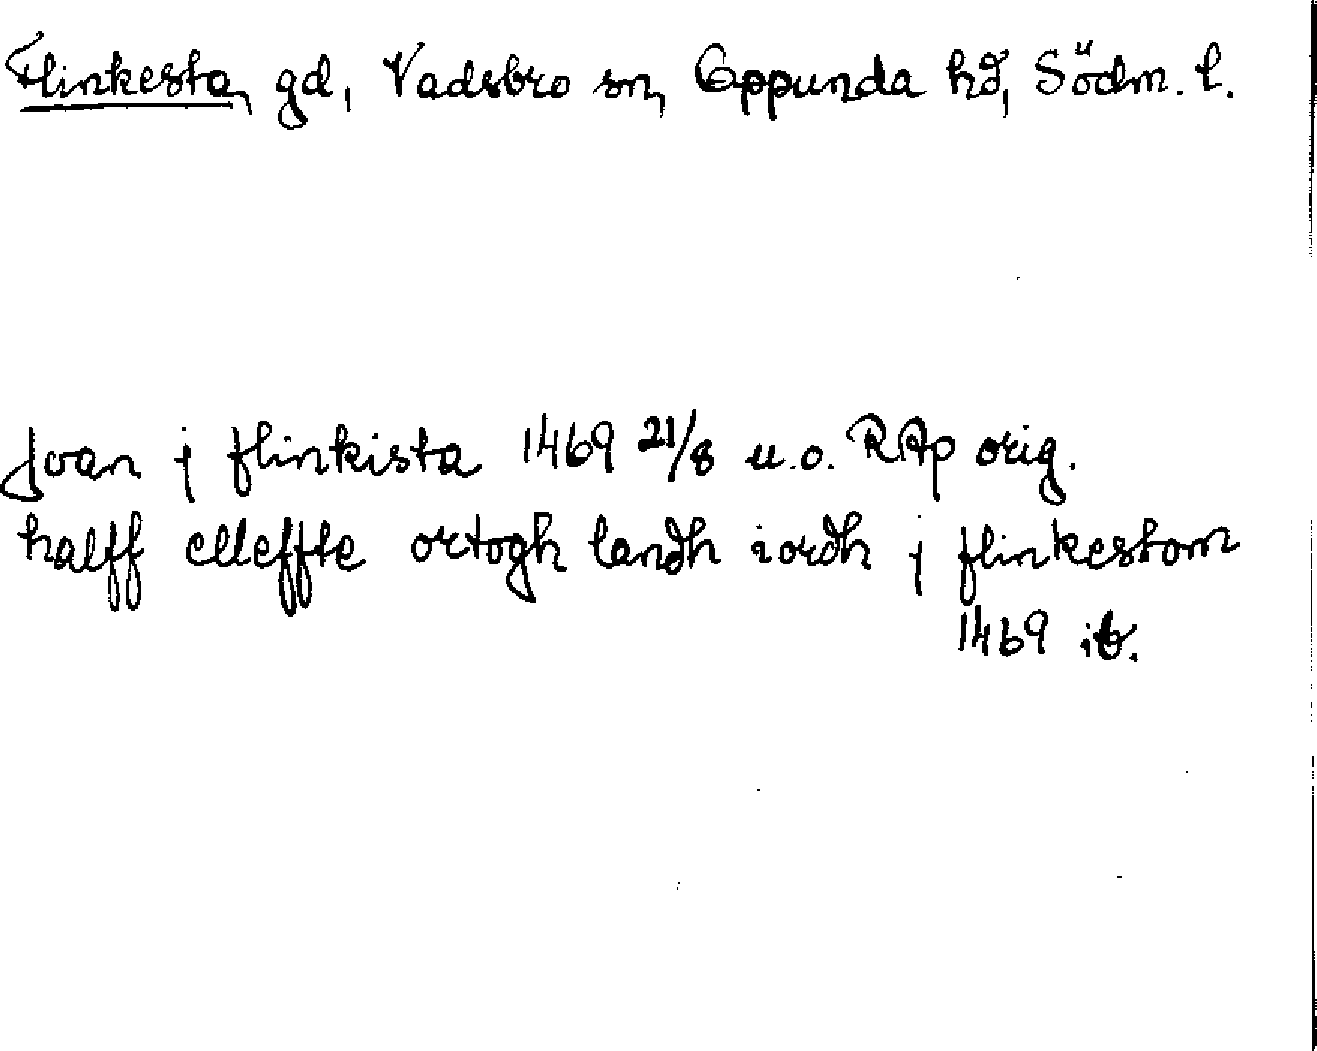 Flinkesta, gd, Vadsbro sn, Oppunda hd, Södm. l.
Joan j flinkista 1469 21/8 u.o. RAp orig.
halff elleffte ortogh landh iordh j flinkestom
1469 ib.